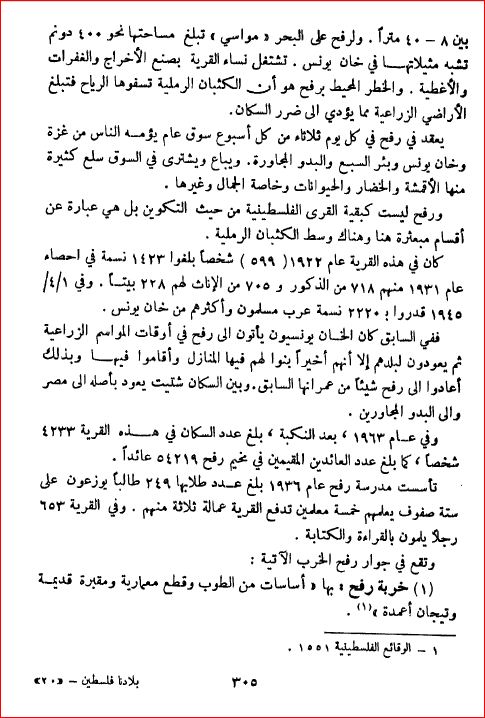 بين ٨ – ٤٠ متراً . ولرفح على البحر « مواسي » تبلغ مساحتها نحو ٤٠٠ دونم
تشبه مثيلاتهـا في خان يونس . تشتغل نساء القرية بصنع الأخراج والغفرات
والأغطية . والخطر المحيط برفح هو أن الكثبان الرملية تسفوها الرياح فتبلغ
الأراضي الزراعية مما يؤدي الى ضرر السكان.
يعقد في رفح في كل يوم ثلاثاء من كل أسبوع سوق عام يؤمـه الناس من غزة
وخان يونس وبئر السبع والبدو المجاورة. ويباع ويشترى في السوق سلع كثيرة
منها الأقشة والخضار والحيوانات وخاصة الجمال وغيرها .
ورفح ليست كبقية القرى الفلسطينية من حيث التكوين بل هي عبارة عن
أقسام مبعثرة هنا وهناك وسط الكثبان الرملية .
كان في هذه القرية عام ١٩٢٢ ( ٥٩٩ ) شخصاً بلغوا ١٤٢٣ نسمة في احصاء
عام ١٩٣١ منهم ٧١٨ من الذكور و ٧٠٥ من الإناث لهم ٢٢٨ بيتـاً . وفي ٤/١/
١٩٤٥ قدروا بـ ٢٢٢٠ نسمة عرب مسلمون وأكثرهم من خان يونس .
ففي السابق كان الخان يونسيون يأتون الى رفح في أوقات المواسم الزراعية
ثم يعودون لبلدهم إلا أنهم أخيراً بنوا لهم فيها المنازل وأقاموا فيهـا وبذلك
أعادوا الى رفح شيئاً من عمرانها السابق. وبين السكان شتيت يعود بأصله الى مصر
والى البدو المجاورين .
وفي عـام ١٩٦٣ ، بعد النكبة ، بلغ عدد السكان في هـذه القرية ٤٢٣٣
شخصاً ، كما بلغ عدد العائدين المقيمين في مخيم رفح ٥٤٢١٩ عائداً .
تأسست مدرسة رفح عام ١٩٣٦ بلغ عـدد طلابها ٢٤٩ طالباً يوزعون على
ستة صفوف يعلمهم خمسة معلمين تدفع القرية عمالة ثلاثة منهم . وفي القرية ٦٥٣
رجلاً يلمون بالقراءة والكتابة .
وتقع في جوار رفح الخرب الآتية :
(١) خربة رفح : بها « أساسات من الطوب وقطع معمارية ومقبرة قديمـة
وتيجان أعمدة » (١) .
١ – الوقائع الفلسطينية ١٥٥١ .
٣٠٥
بلادنا فلسطين – «٢٠»